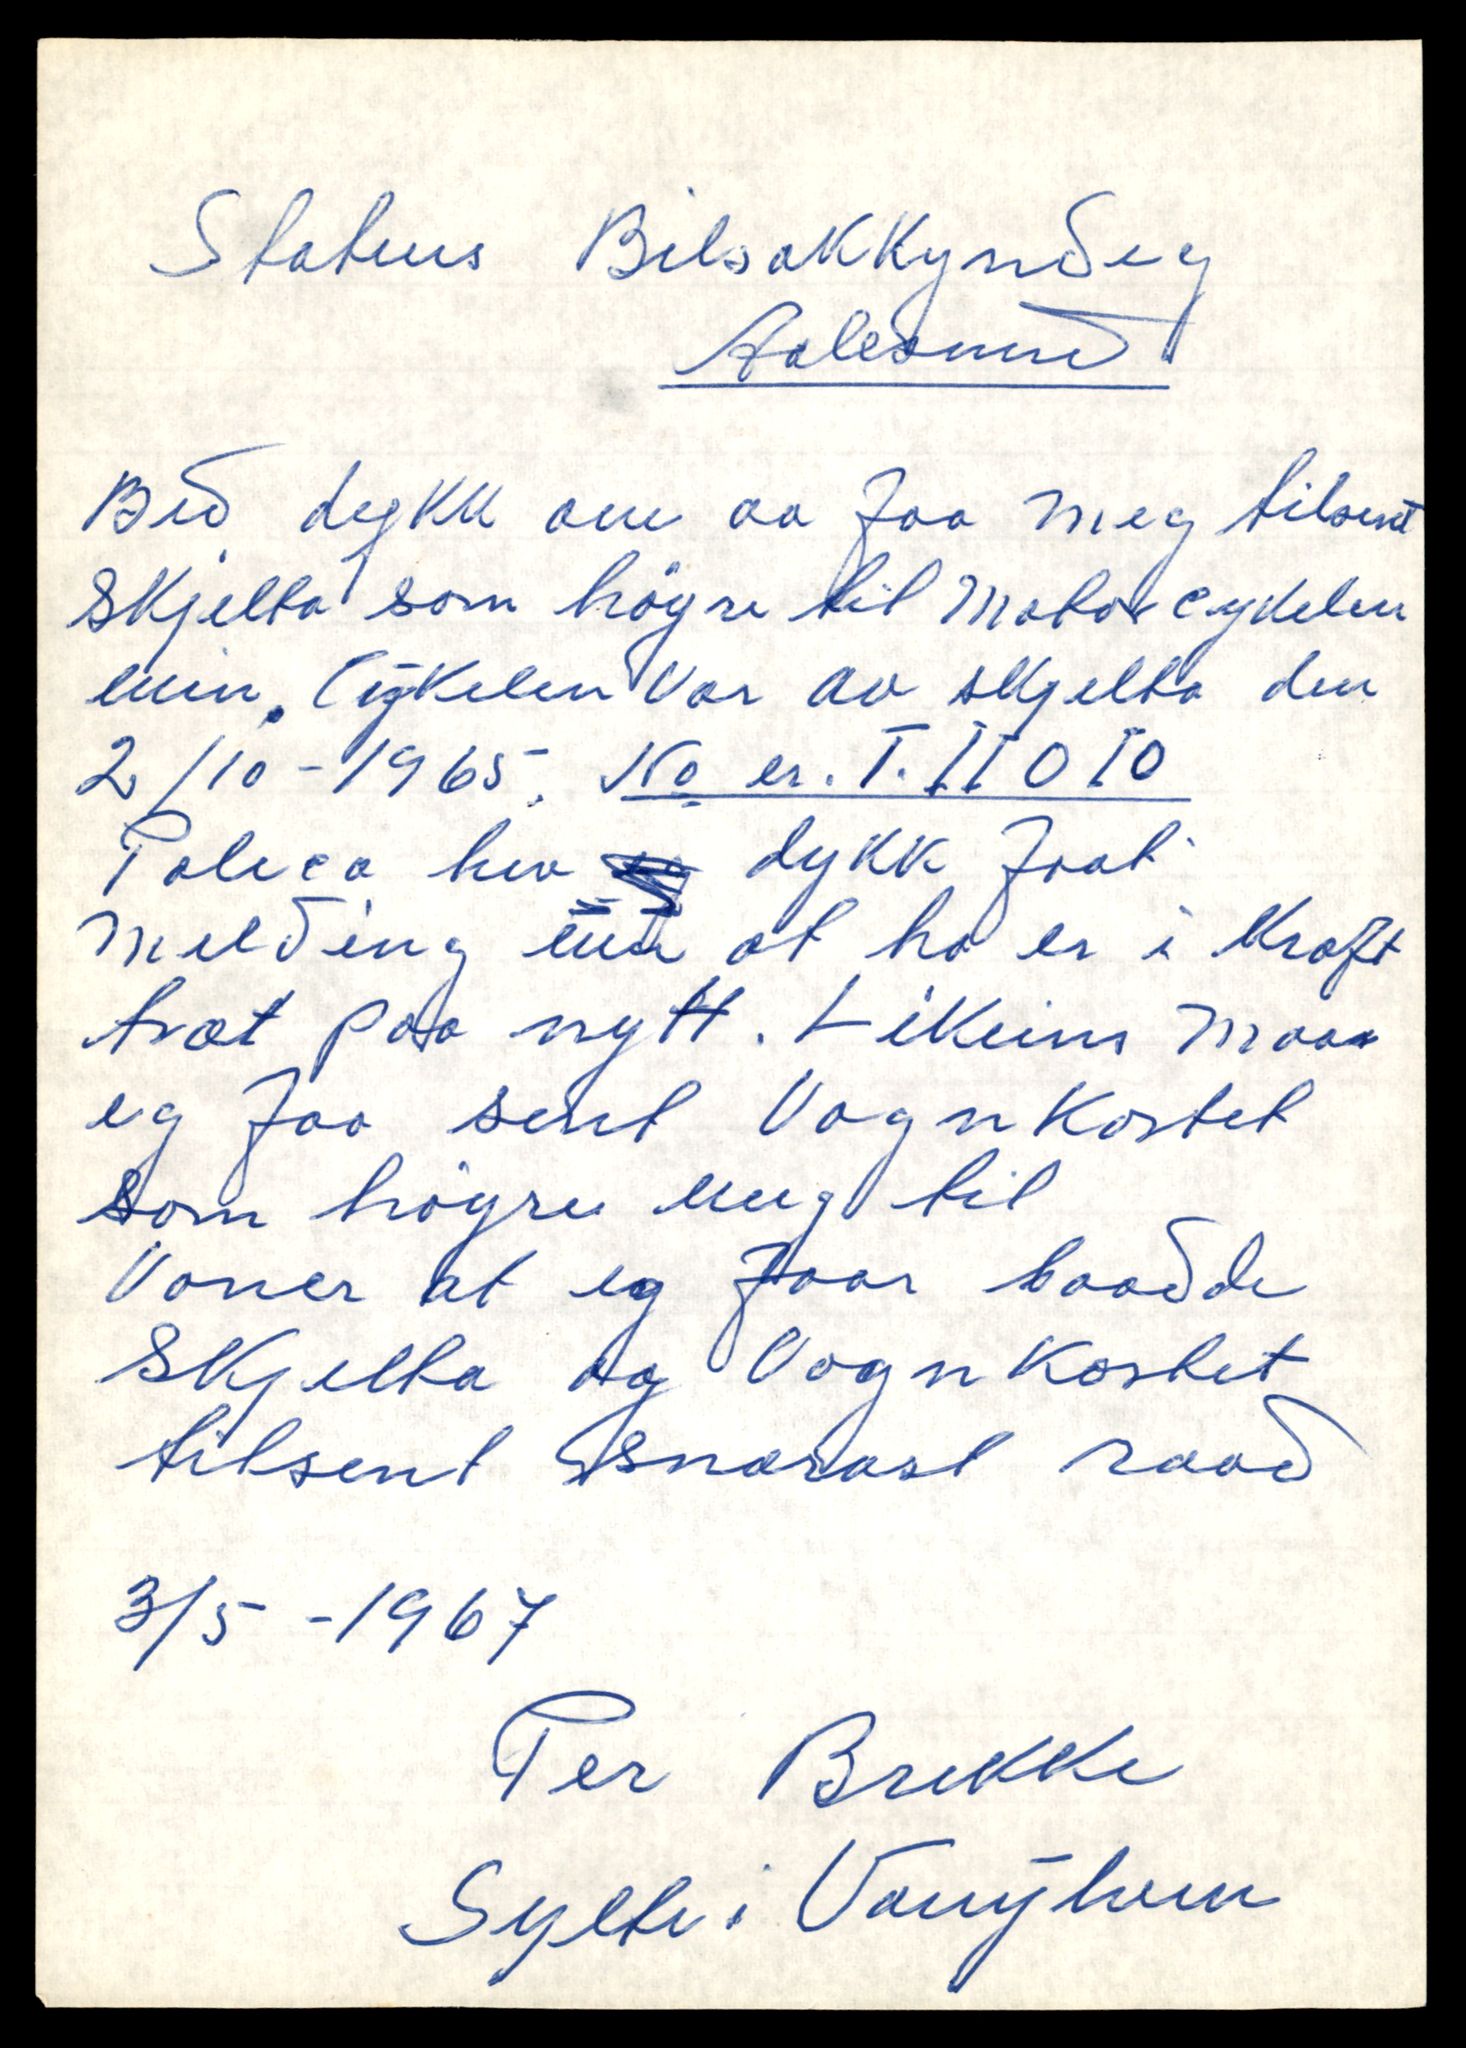 Statens Bilsakkyndeg
Aalesund
Bed dykk om aa faa meg tilsent
Skjelta som högre til Motorcykelen
min. Cykelen var av skjelta den
2/10-1965. No er. T. IIOIO
Polica hev dykk faat
melding um at ho er i Kraft
træt paa nytt. Likeins maa
eg faa sent Vognkortet
som högre meg til
Voner at eg faar baade
Skjelta og Vognkortet
tilsent snarast raad
3/5 -1967
Per Brekke
Sylte i Vanylven